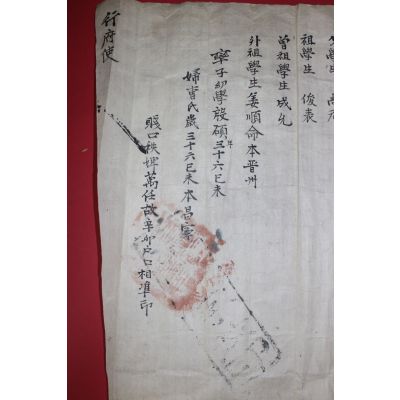 祖學生 俊表
曾祖學生 成允
外祖學生姜順命本晋州
率子幼學殷碩年三十六己未
婦曺氏歲三十六己未本昌寧
賤口秩婢萬任故辛卯戶口相準印
行府使